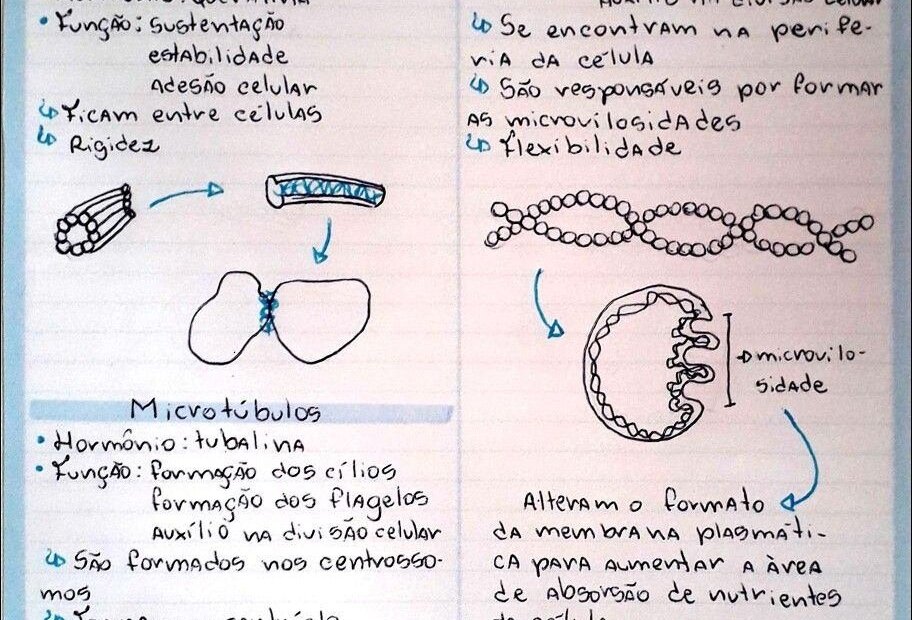 • Função: sustentação
estabilidade
Adesão celular
↳ Ficam entre células
↳ Rigidez
Microtúbulos
• Hormônio: tubalina
• Função: formação dos cílios
formação dos flagelos
Auxílio na divisão celular
↳ São formados nos centrosso-
mos
↳ Se encontram na perife-
ria da célula
↳ São responsáveis por formar
as microvilosidades
↳ Flexibilidade
microvilo-
sidade
Alteram o formato
da membrana plasmáti-
ca para aumentar a àrea
de absorsão de nutrientes